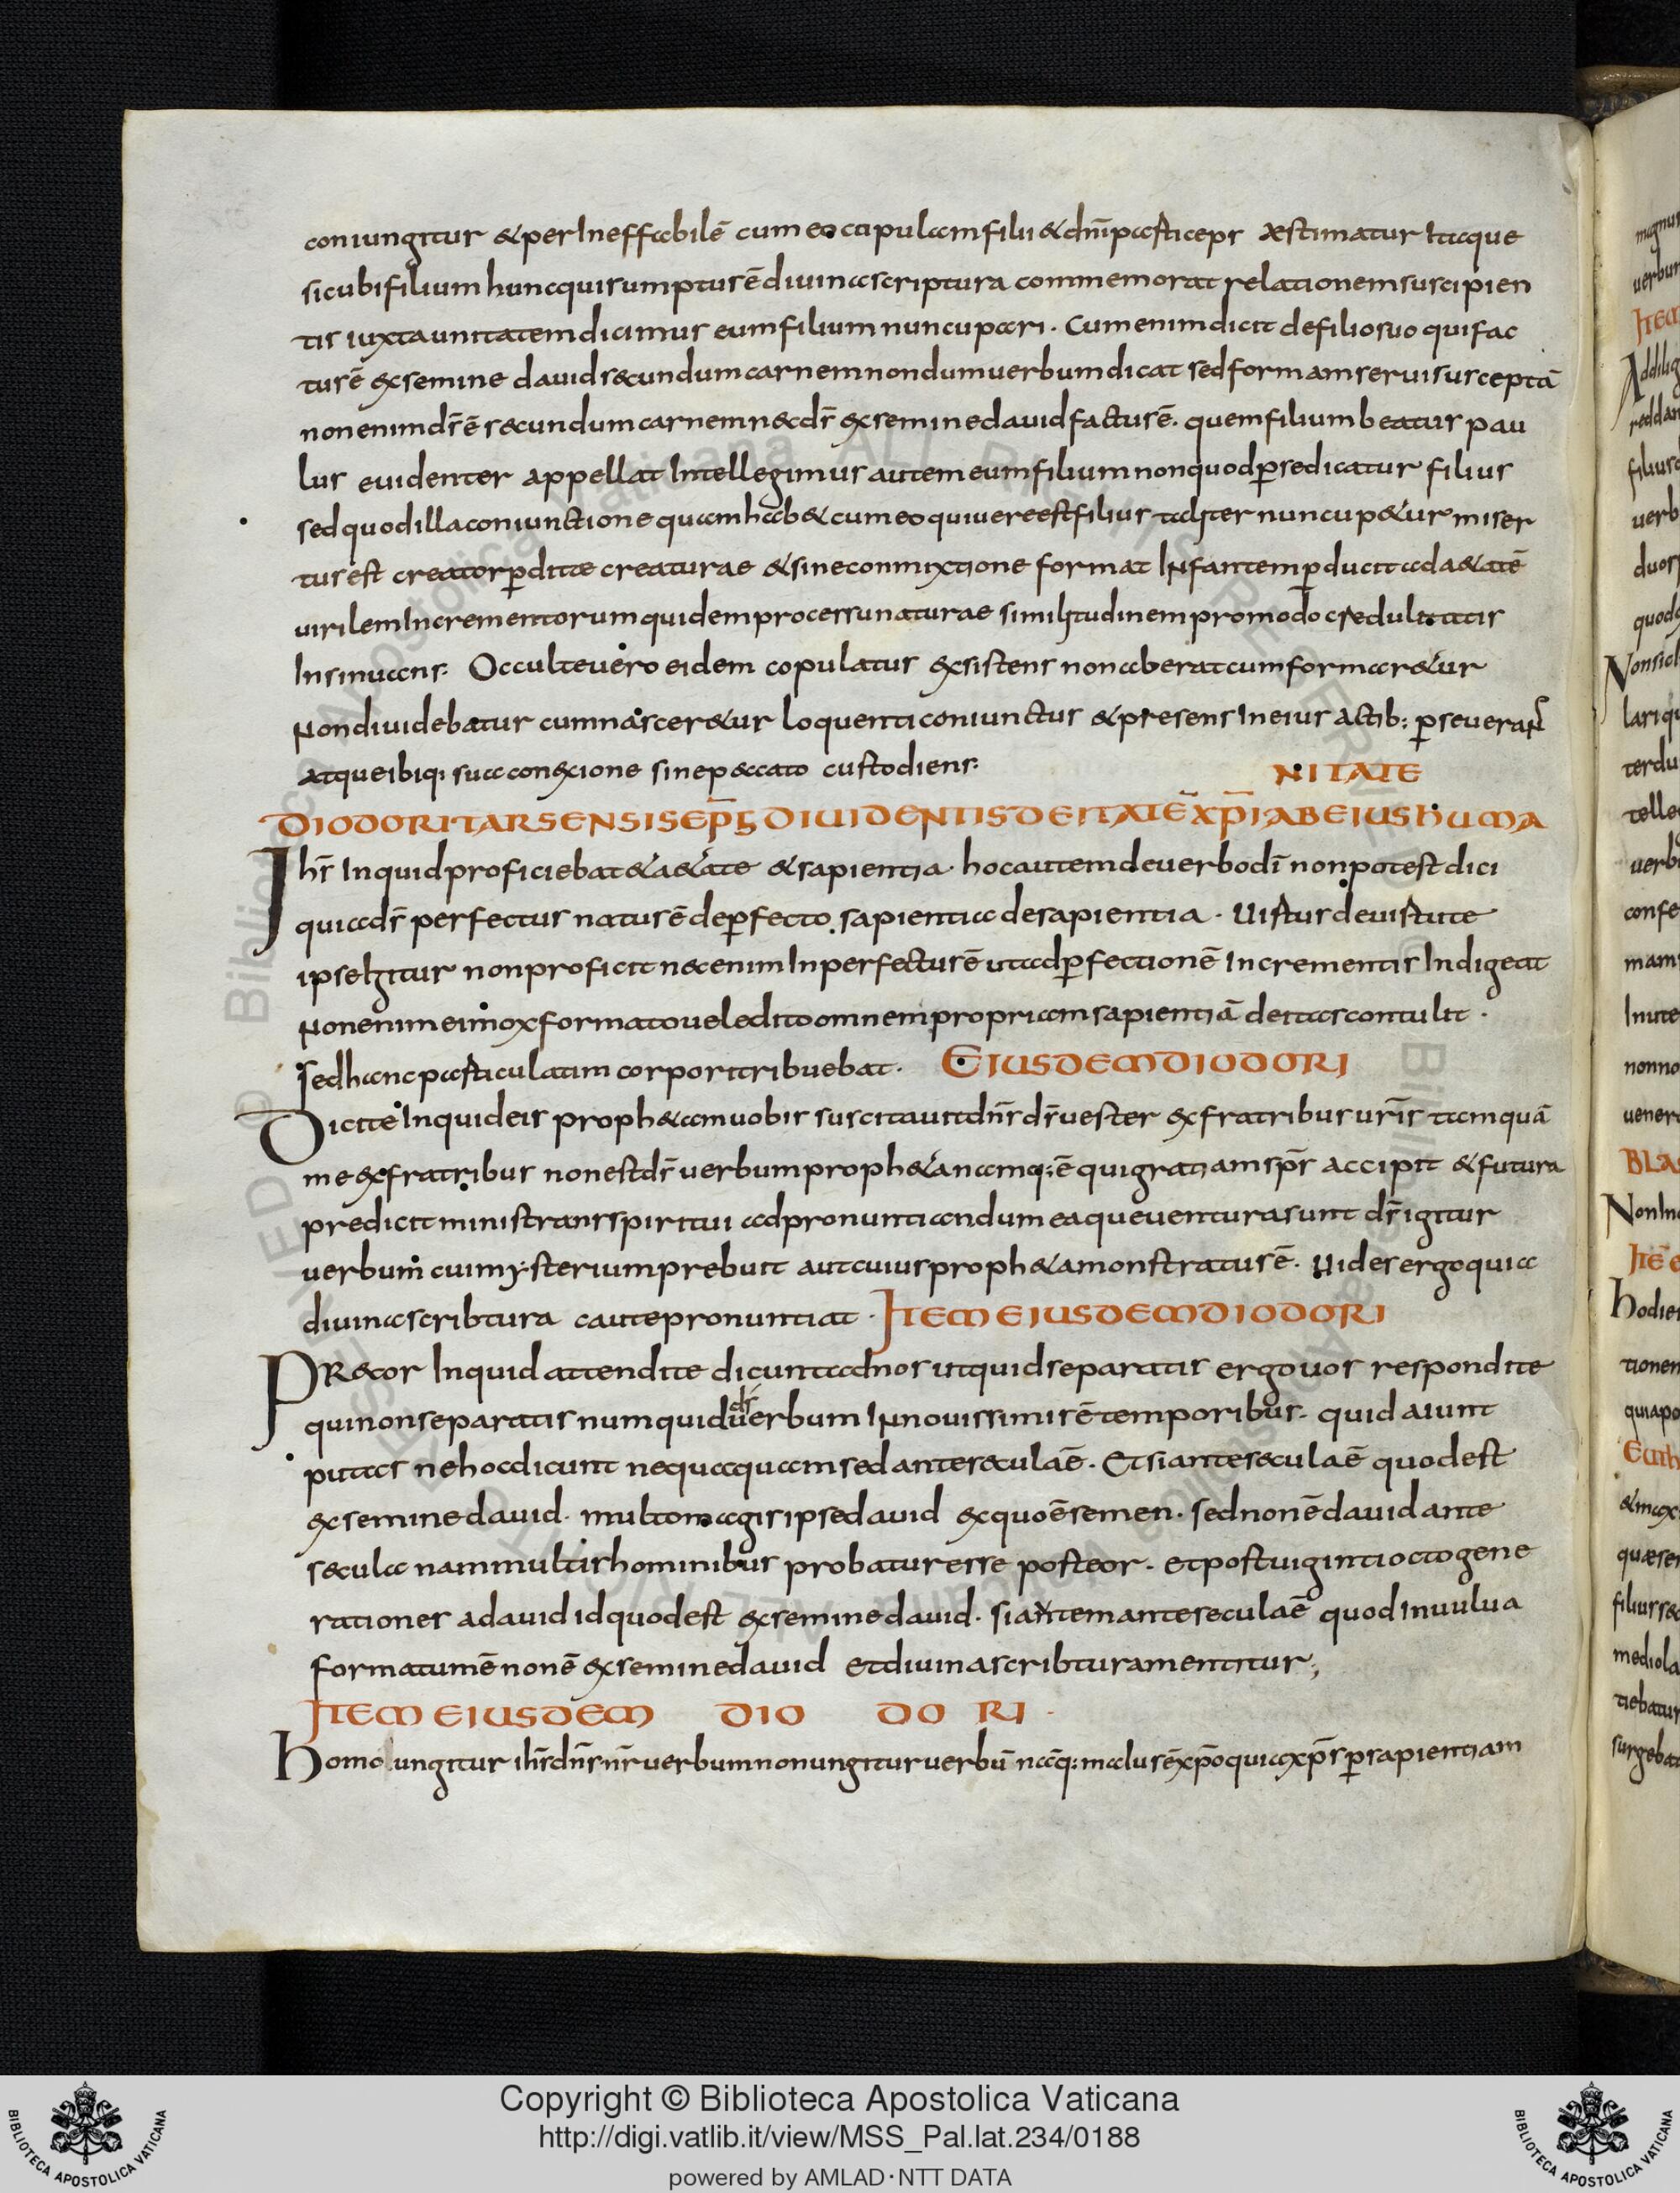 coniungitur & per Ineffabilē cum eo capulam filii & dnī pasticeps æstimatur Itaque
sicubi filium hunc qui sumptus ē diuina scriptura commemorat relationem suscipien
tis iuxta unitatem dicimus eum filium nuncupari. Cum enim dicit de filio suo qui fac
tus ē ex semine dauid secundum carnem non dum uerbum dicat sed formam serui susceptā
non enim dr̄ ē secundum carnem nec dr̄ ex semine dauid factus ē. quem filium beatus pau
lus euidenter appellat Intellegimus autem eum filium non quod p̄ se dicatur filius
sed quod illa coniunctione quam hab& cum eo qui uere est filius taliter nuncup&ur miser
tus est creator p̄dite creaturae & sine conmixtione format INfantem p̄ducit ad a&atē
uirilem Incrementorum quidem processu naturae similitudinem promodo credulitatis
Insinuans. Occulte uero eidem copulatus exsistens non aberat cum formar&ur
Non diuidebatur cum nascer&ur loquenti coniunctus & presens In eius actib; p̄seuerans
atque ibiq; sua conexione sine peccato custodiens.
NITATE
DIODORI TARSENSIS EP̄I DIUIDENTIS DEITATĒ XP̄I AB EIUS HUMA
Ihs̄ Inquid proficiebat & a&ate & sapientia. hoc autem de uerbo dī non potest dici
quia dr̄ perfectus natus ē de p̄fecto sapientia de sapientia. Uistus de uistute
ipse Igitur non proficit nec enim Inperfectus ē ut ad p̄fectionē Incrementis Indigeat
Non enim ei mox formato uel edito omnem propriam sapientiā deitas contulit.
sed hanc pasticulatim corpori tribuebat. EIUSDEM DIODORI
Dicite Inquid eis proph&am uobis suscitauit dn̄s dr̄ uester ex fratribus ur̄is tamquā
me ex fratribus non est dr̄ uerbum proph&a namq; ē qui gratiam sp̄s accipit & futura
predicit ministrans spiritui ad pronuntiandum ea que uentura sunt dr̄ igitur
uerbum cui mysterium prebuit aut cuius proph&a monstratus ē. Uides ergo quia
diuina scribtura caute pronuntiat. ITEM EIUSDEM DIODORI
PRecor Inquid attendite dicunt ad nos ut quid separatis ergo uos respondite
qui non separatis numquid ds uerbum IN nouissimis ē temporibus. quid aiunt
putas ne hoc dicunt nequaquam sed ante secula ē. Et si ante secula ē quod est
ex semine dauid. multo magis ipse dauid ex quo ē semen. sed non ē dauid ante
secula nam multis hominibus probatur esse posteor. et post uiginti octo gene
rationes a dauid id quod est ex semine dauid. si autem ante secula ē quod In uulua
formatum ē non ē ex semine dauid et diuina scribtura mentitur;
ITEM EIUSDEM DIO DO RI.
Homo ungitur ihs̄ dn̄s nr̄ uerbum non ungitur uerbū naq; malus ē xp̄o quia xp̄s p̄ sapientiam
Copyright © Biblioteca Apostolica Vaticana
http://digi.vatlib.it/view/MSS_Pal.lat.234/0188
powered by AMLAD·NTT DATA
BIBLIOTECA APOSTOLICA VATICANA
BIBLIOTECA APOSTOLICA VATICANA